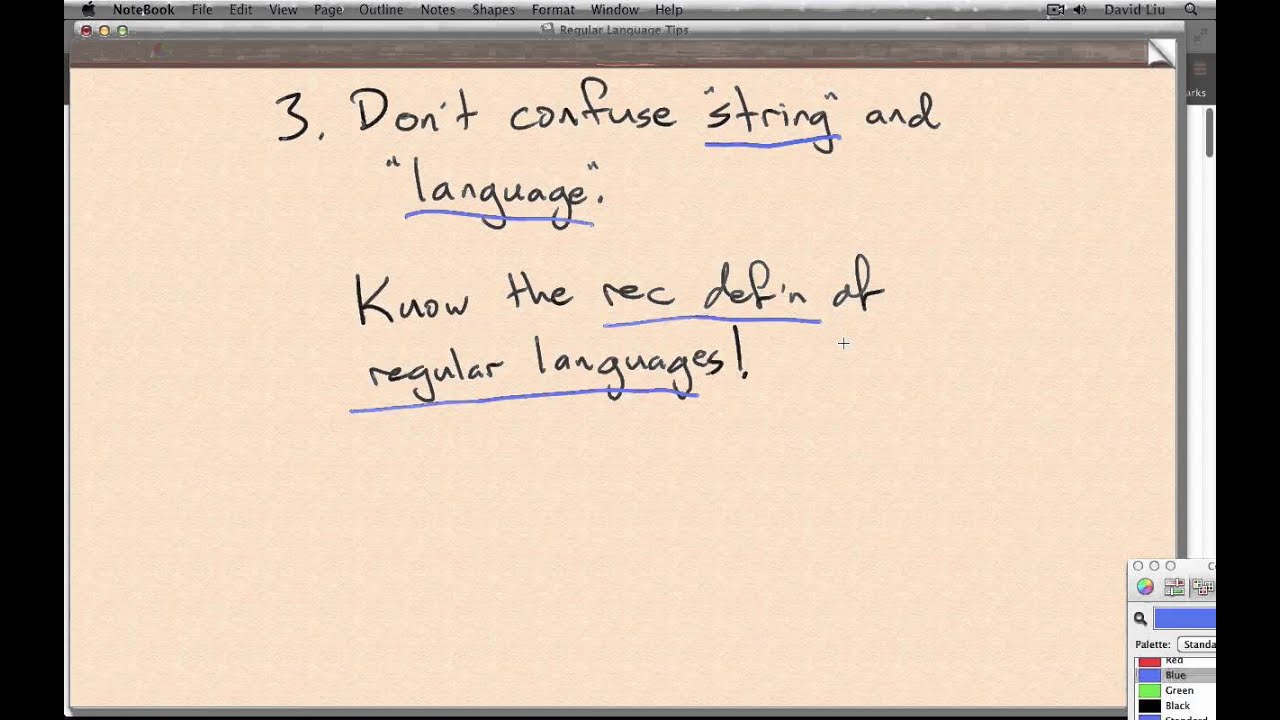 NoteBook File Edit View Page Outline Notes Shapes Format Window Help David Liu
Regular Language Tips
arks
3. Don't confuse "string" and
"language".
Know the rec def'n of
regular languages!
C
Palette: Standa
Red
Blue
Green
Black
Standard